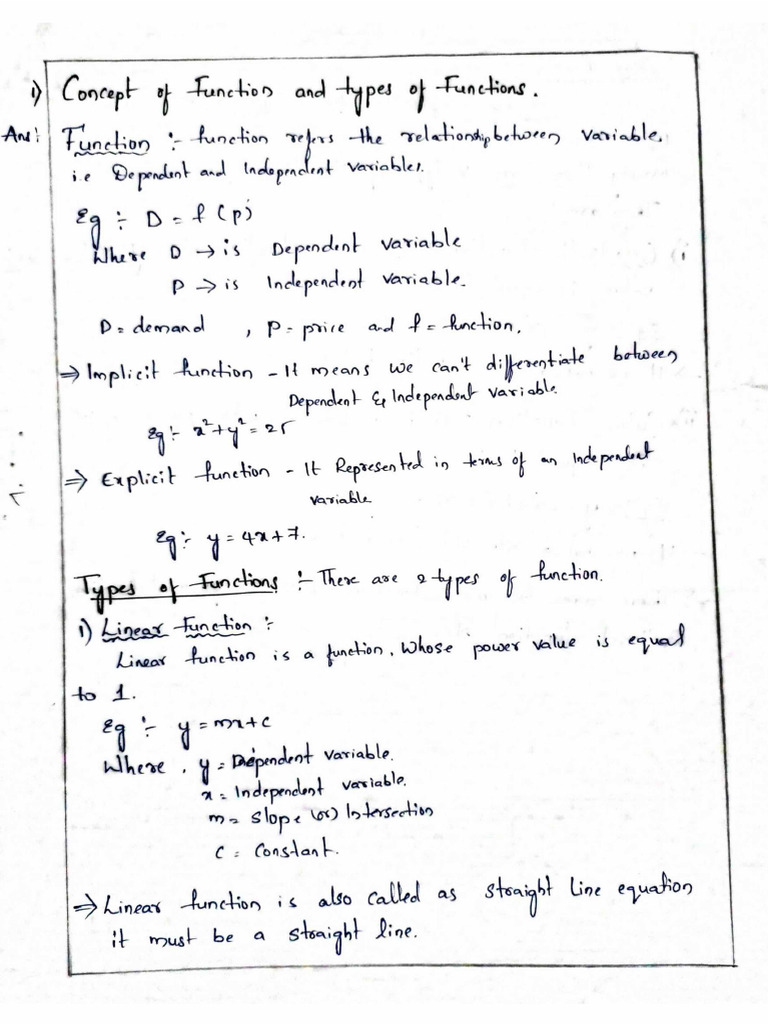 1) Concept of Function and types of Functions.
Ans: Function :- function refers the relationship between variable,
i.e Dependent and Independent variables.
Eg :- D = f (p)
Where D → is Dependent variable
P → is Independent variable.
D = demand , P = price and f = function.
⇒ Implicit function - It means we can't differentiate between
Dependent & Independent variable.
Eg :- x² + y² = 25
⇒ Explicit function - It Represented in terms of an Independent
variable
Eg :- y = 4x + 7.
Types of Functions :- There are 2 types of function.
1) Linear Function :-
Linear function is a function. Whose power value is equal
to 1.
Eg :- y = mx + c
Where , y = Dependent variable.
x = Independent variable.
m = Slope (or) Intersection
C = Constant.
⇒ Linear function is also called as straight line equation
it must be a straight line.